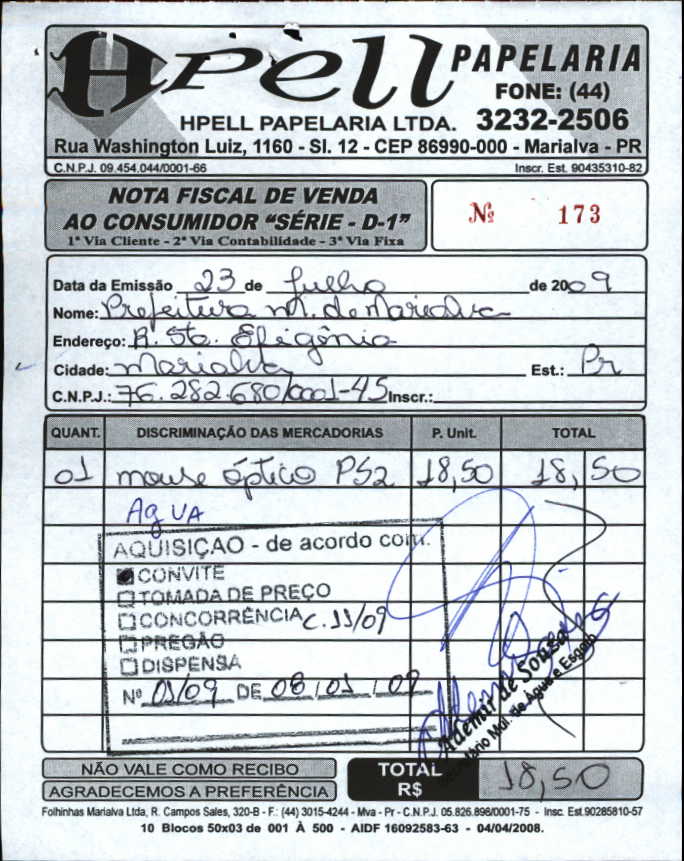 HPell PAPELARIA
FONE: (44)
HPELL PAPELARIA LTDA. 3232-2506
Rua Washington Luiz, 1160 - Sl. 12 - CEP 86990-000 - Marialva - PR
C.N.P.J. 09.454.044/0001-66 Inscr. Est. 90435310-82
NOTA FISCAL DE VENDA
AO CONSUMIDOR "SÉRIE - D-1"
1ª Via Cliente - 2ª Via Contabilidade - 3ª Via Fixa
Nº 173
Data da Emissão 23 de julho de 2009
Nome: Prefeitura M. de Marialva
Endereço: R. Sta. Efigênia
Cidade: Marialva Est.: Pr
C.N.P.J.: 76.282.680/0001-45 Inscr.:
QUANT. DISCRIMINAÇÃO DAS MERCADORIAS P. Unit. TOTAL
01 mouse óptico PS2 18,50 18,50
AgUA
AQUISIÇÃO - de acordo com.
CONVITE
TOMADA DE PREÇO
CONCORRÊNCIA C. 11/09
PREGÃO
DISPENSA
Nº 01/09 DE 08/01/09
Ademir de Sousa
Secretário Mul. de Água e Esgoto
NÃO VALE COMO RECIBO
AGRADECEMOS A PREFERÊNCIA
TOTAL R$ 18,50
Folhinhas Marialva Ltda, R. Campos Sales, 320-B - F.: (44) 3015-4244 - Mva - Pr - C.N.P.J. 05.826.896/0001-75 - Insc. Est.90285810-57
10 Blocos 50x03 de 001 À 500 - AIDF 16092583-63 - 04/04/2008.